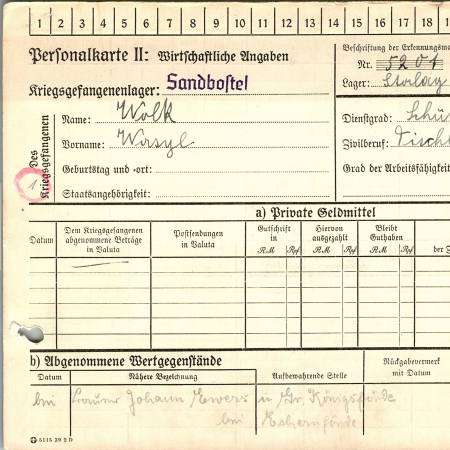 1 2 3 4 5 6 7 8 9 10 11 12 13 14 15 16 17 18
Personalkarte II: Wirtschaftliche Angaben
Beschriftung der Erkennungsma
Nr. 5201
Kriegsgefangenenlager: Sandbostel
Lager: Stalag
Des Kriegsgefangenen
1
Name: Wolk
Vorname: Wasyl
Geburtstag und -ort:
Staatsangehörigkeit:
Dienstgrad: Schü
Zivilberuf: Tischl
Grad der Arbeitsfähigkeit
a) Private Geldmittel
Datum
Dem Kriegsgefangenen abgenommene Beträge in Valuta
Postsendungen in Valuta
Gutschrift in
RM Rpf
Hiervon ausgezahlt
RM Rpf
Bleibt Guthaben
RM Rpf
der Z
b) Abgenommene Wertgegenstände
Datum
Nähere Bezeichnung
Aufbewahrende Stelle
Rückgabevermerk mit Datum
bei Johann Ewers in Gr. Königsförde
bei Eckernförde
5115 39 2 D